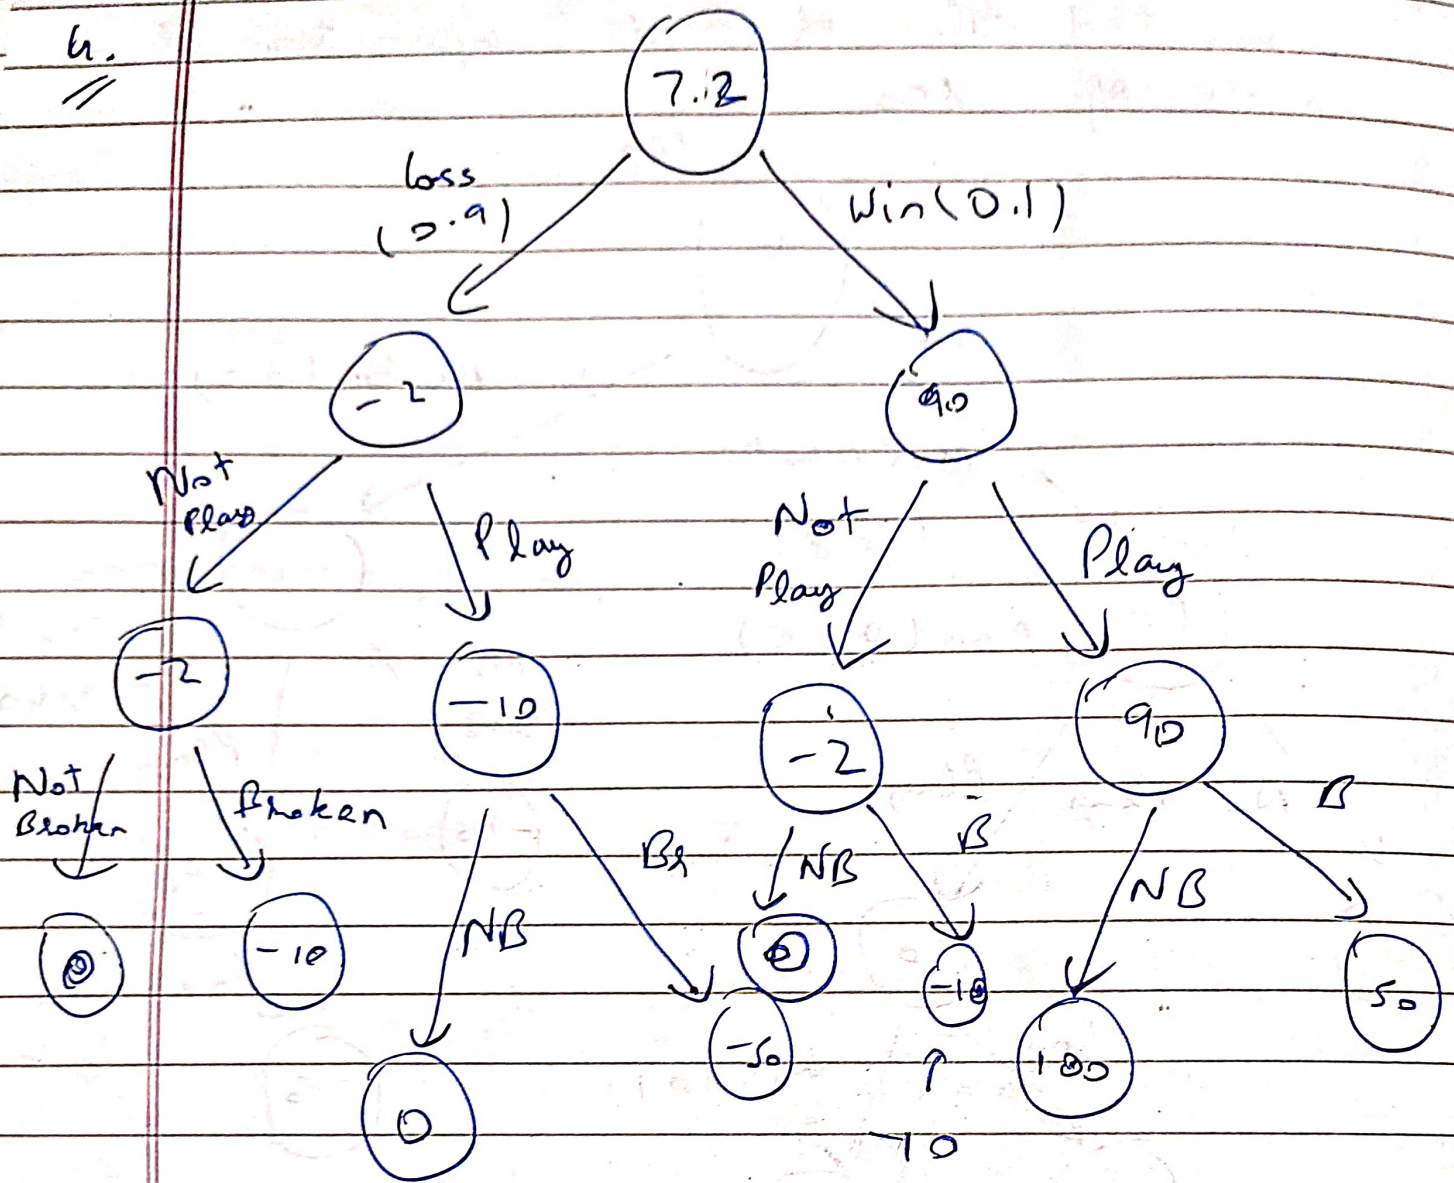 4.
7.2
loss
(0.9)
Win(0.1)
-2
90
Not
Play
Play
Not
Play
Play
-2
-10
-2
90
Not
Broken
Broken
NB
Br
NB
B
NB
B
0
-10
0
-50
0
-10
100
50
-10